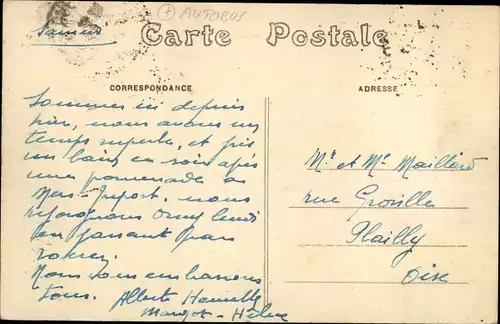 + AUTOBUS
Samedi
Carte Postale
CORRESPONDANCE
ADRESSE
Sommes ici depuis
hier, nous avons un
temps superbe, et pris
un bain ce soir après
une promenade a
Mers-Tréport. nous
lundi
en passant par
Nous vous embrassons
tous. Alberte Henriette
Margot - Hélène
Mr et Me Maillard
rue
Plailly
Oise